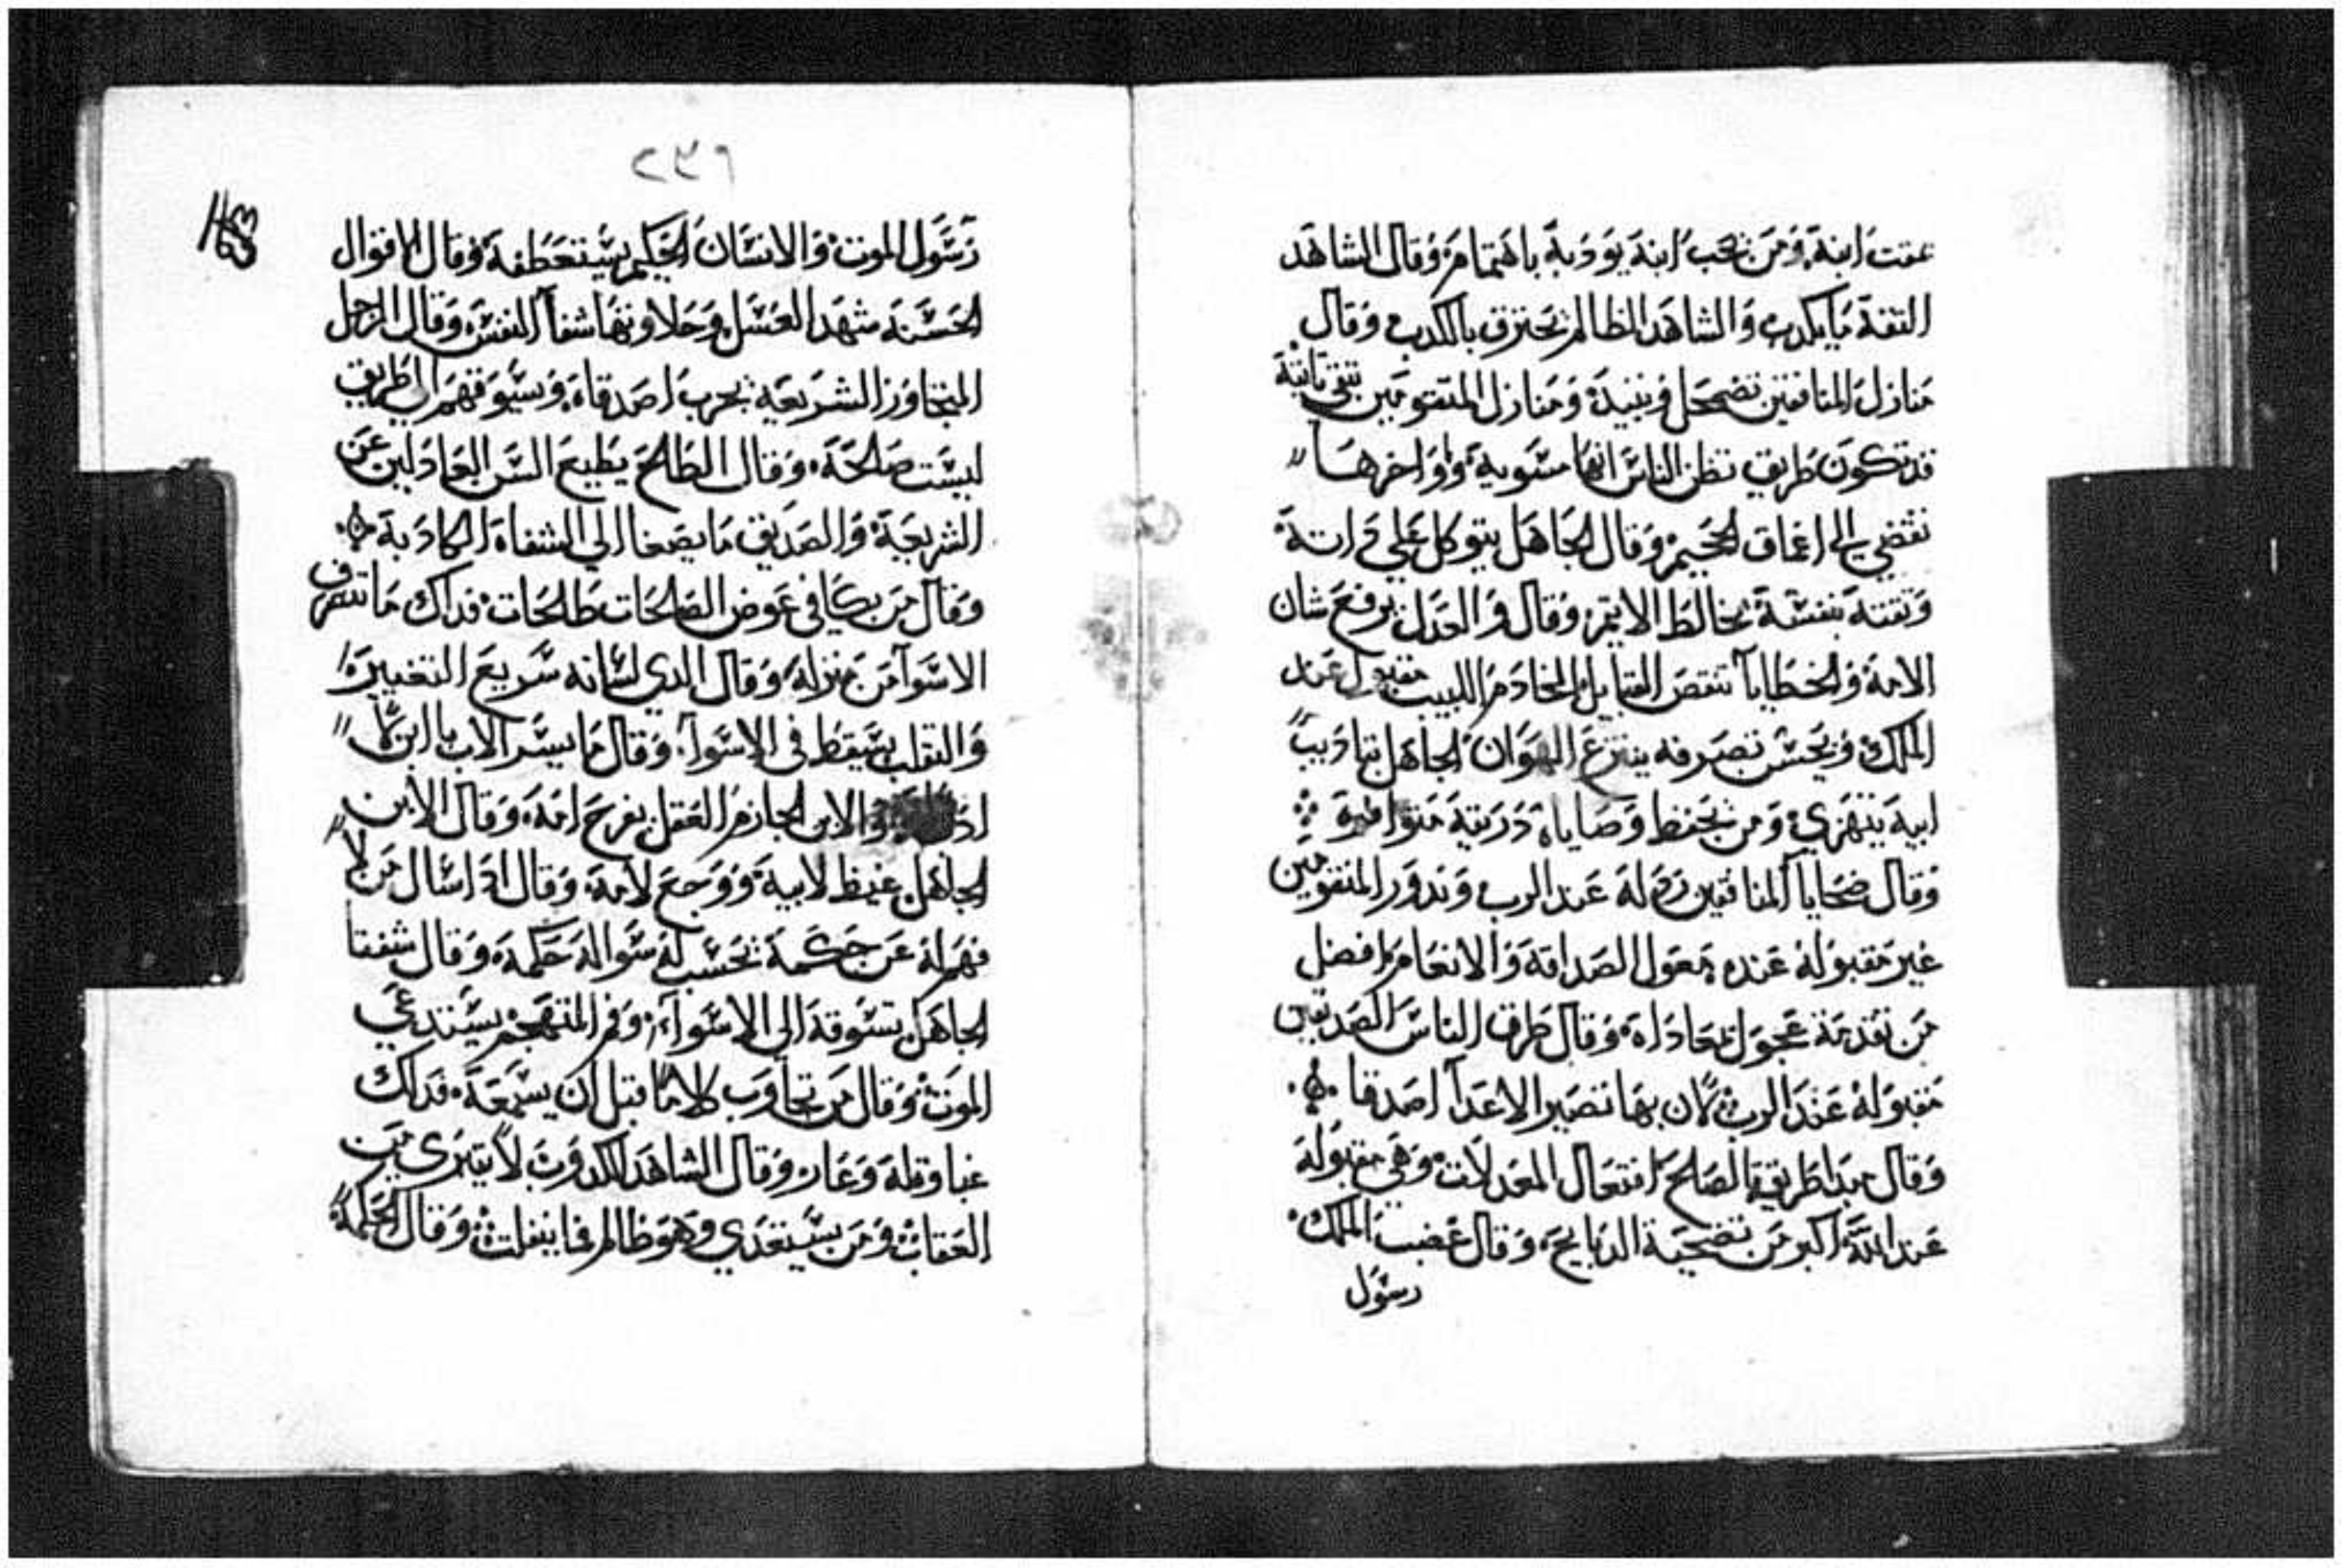 عقت ابنه ومن يحب ابنه يودبه باهتمام وقال الشاهد
الثقة ما يكدب والشاهد الظالم يحترق بالكدب وقال
منازل المنافقين تضمحل وتبيد ومنازل المتقومين تبقى ثابتة
قد تكون طريق تظن الناس انها مستوية واواخرها
تفضي الى اعماق الجحيم وقال الجاهل يتوكل على داته
وثقته بنفسه يخالط الاثم وقال والعدل يرفع شان
الامة والخطايا تنقص القبايل الخادم اللبيب مقبول عند
الملك وبحسن تصرفه ينتزع الهوان الجاهل بتاديب
ابيه يتهزي ومن يحفظ وصاياه دريته متوافرة
وقال ضحايا المنافقين ردلة عند الرب وندور المتقومين
غير مقبولة عنده معول الصداقة والانعام افضل
من تقدمة عجول بمعاداه وقال طرق الناس الصديقين
مقبولة عند الرب لان بها تصير الاعدا اصدقا
وقال مبدا طريقة الصلح افتعال المعدلات وهي مقبولة
عند الله اكبر من تضحية الدبايح وقال غضب الملك
رسول
٢٣٦
رسول الموت والانسان الحكيم يستعطفه وقال الاقوال
الحسنة شهد العسل وحلاوتها شفا النفس وقال الرجل
المتجاوز الشريعة يجرب اصدقاه ويسوقهم الى طريق
ليست صالحة وقال الطالح يطيع السن العادلين عن
الشريعة والصديق ما يصغا الي الشفاه الكادبة
وقال من يكافي عوض الصالحات طالحات فداك ما تنصرف
الاسوا من منزله وقال الدي لسانه سريع التغيير
والتقلب يسقط في الاسوا وقال ما يسر الاب بالابن
والابن الحازم العقل يفرح امه وقال الابن
الجاهل غيظ لابيه ووجع لامه وقال ادا سال من لا
فهم له عن حكمة تحسب له سواله حكمة وقال شفتا
الجاهل تسوقه الى الاسواء وفم المتهجم يستدعي
الموت وقال من يجاوب كلاما قبل ان يسمعه فداك
غباوة له وعار وقال الشاهد الكدوب لا يتبرى من
العقاب ومن يستعدي وهو ظالم فما ينفلت وقال الحكمة